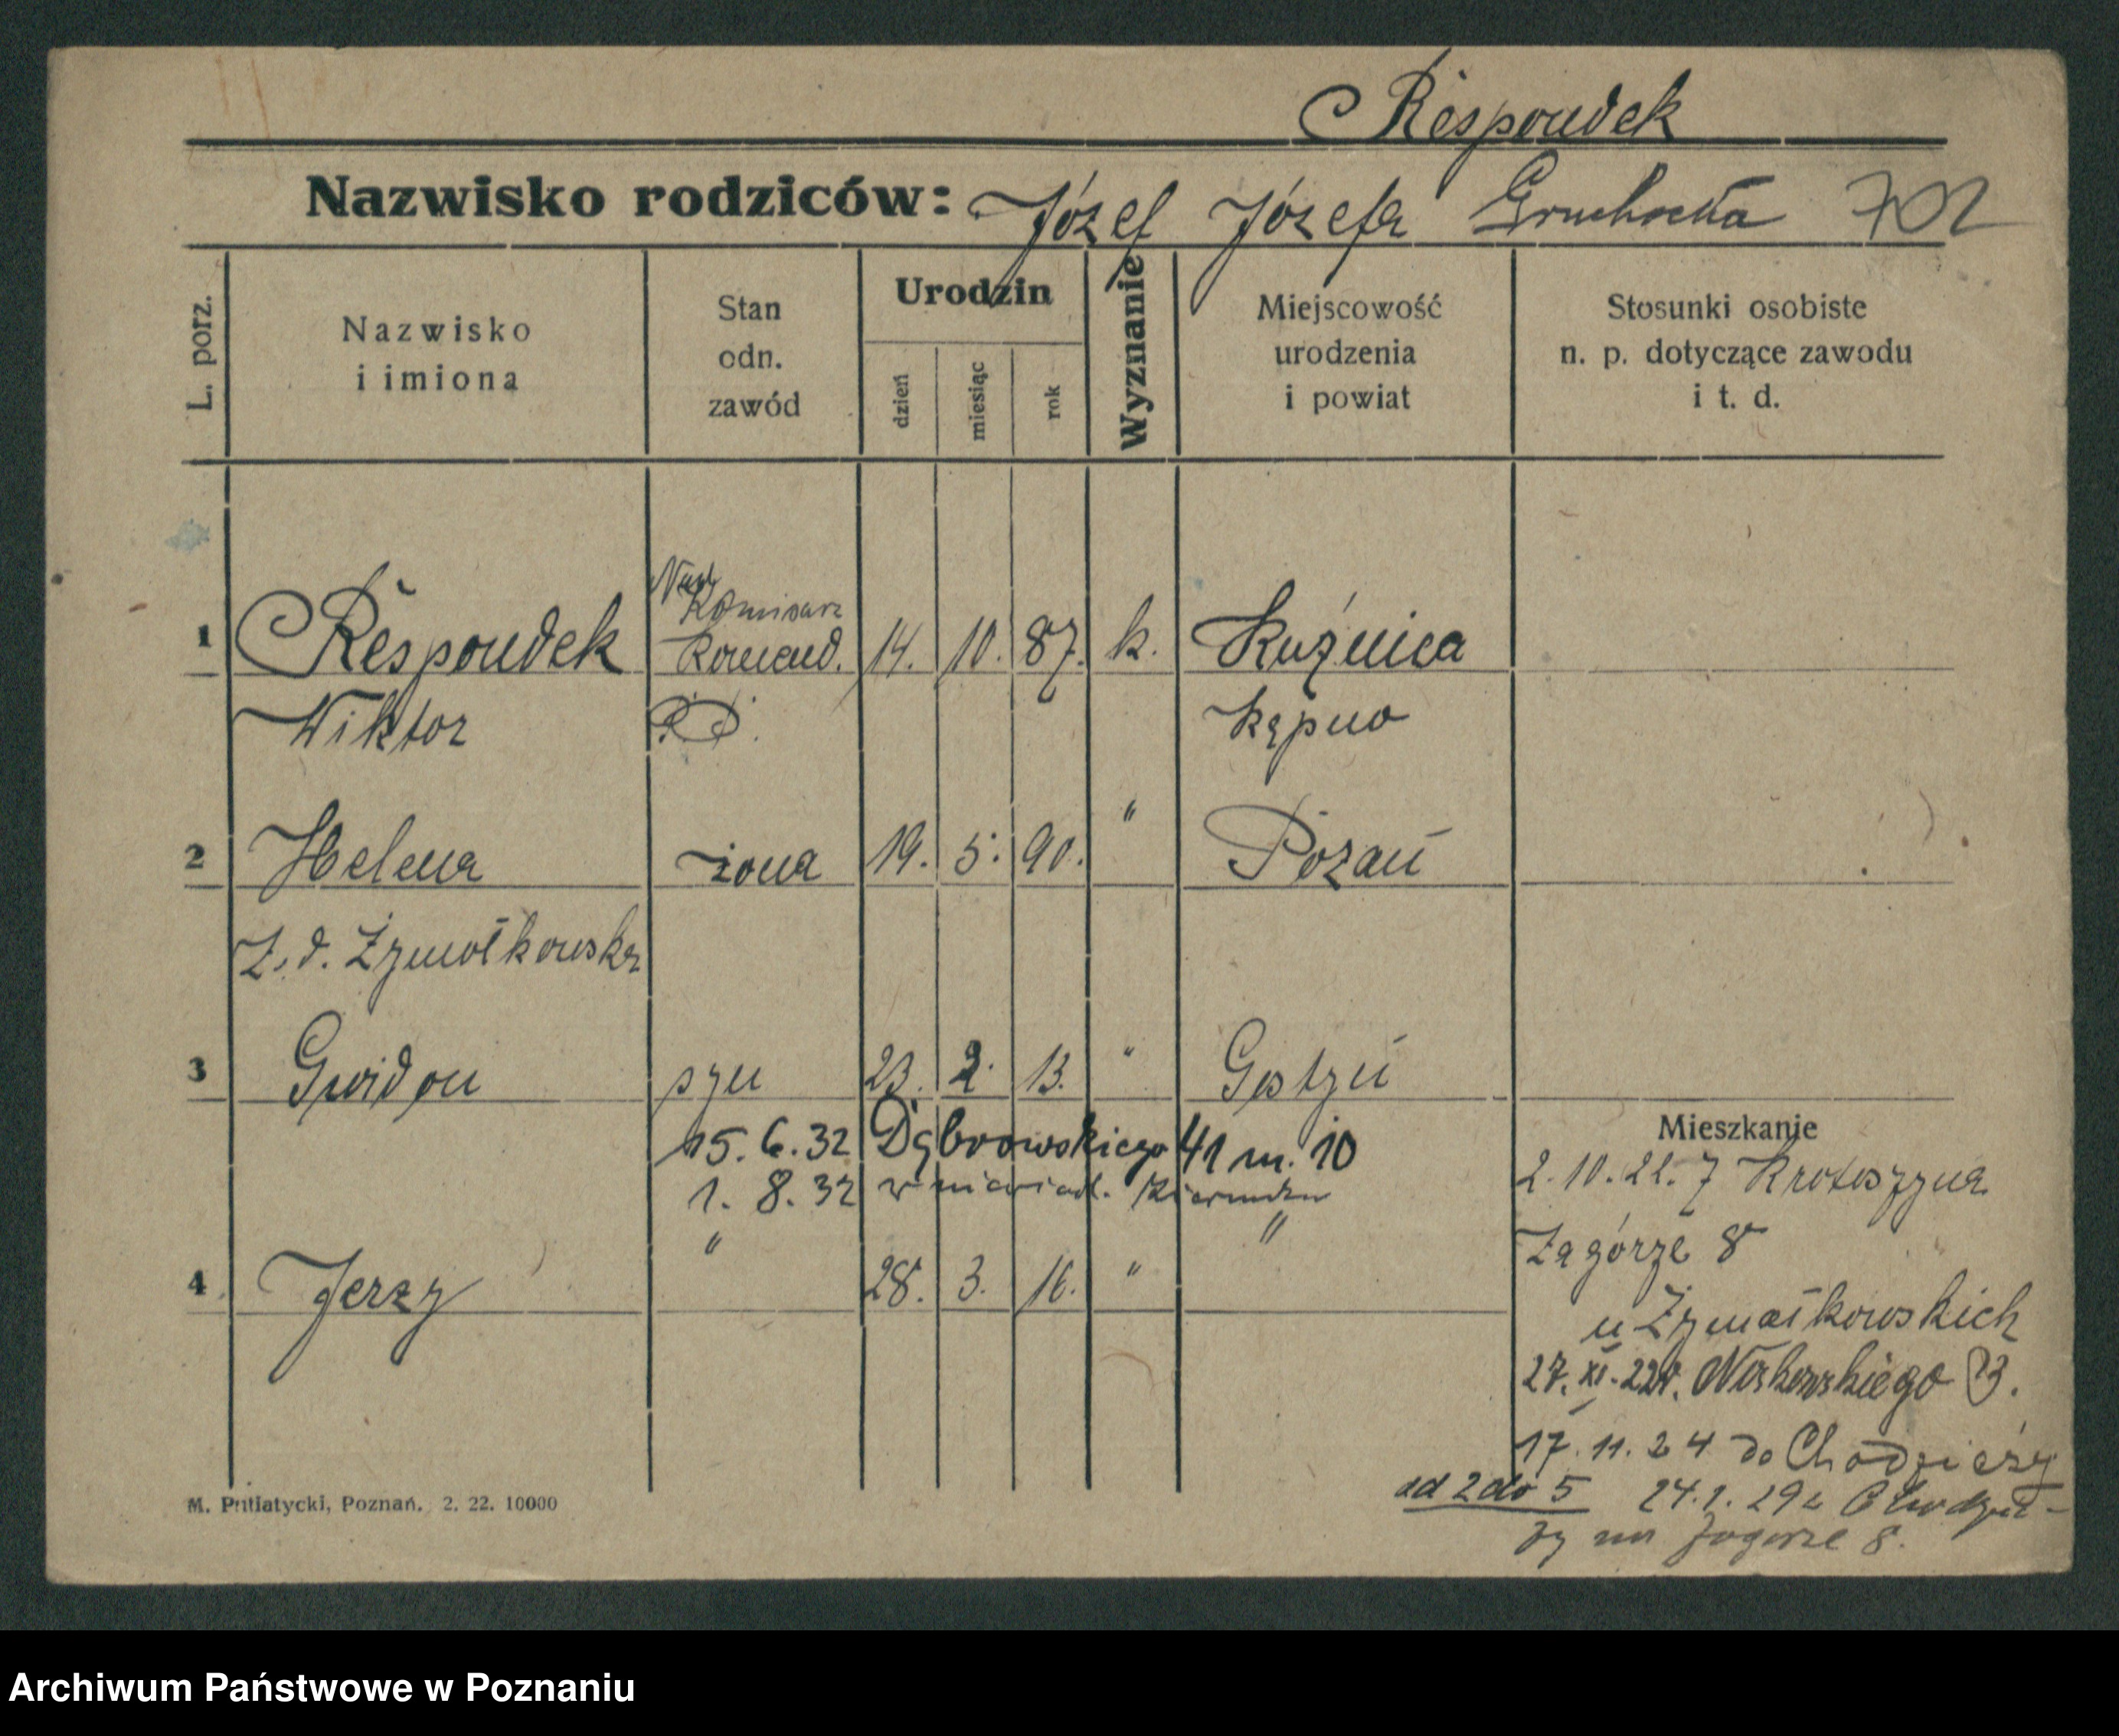 Respondek
Nazwisko rodziców: Józef Józefa Gruchocka
L. porz.
Nazwisko
i imiona
Stan
odn.
zawód
Urodzin
dzień
miesiąc
rok
Wyznanie
Miejscowość
urodzenia
i powiat
Stosunki osobiste
n. p. dotyczące zawodu
i t. d.
Nad
Komisarz
1 Respondek Komend. 14. 10. 87. k. Kuźnica
Wiktor P.P. Kępno
2 Helena żona 19. 5. 90. " Poznań
Z. d. Żymałkowska
3 Gwidon syn 23. 2. 13. " Gostyń
15. 6. 32 Dąbrowskiego 41 m. 10
1. 8. 32 w niewiad. kierunku
4 Jerzy " 28. 3. 16. " "
Mieszkanie
2. 10. 22. z Krotoszyna
Zagórze 8
u Żymałkowskich
27. XI. 22r. Noskowskiego 23.
17. 11. 24 do Chodzieży
od 2 do 5 24. 1. 29 z Chodzie-
ży na Zagórze 8.
M. Putiatycki, Poznań. 2. 22. 10000
Archiwum Państwowe w Poznaniu